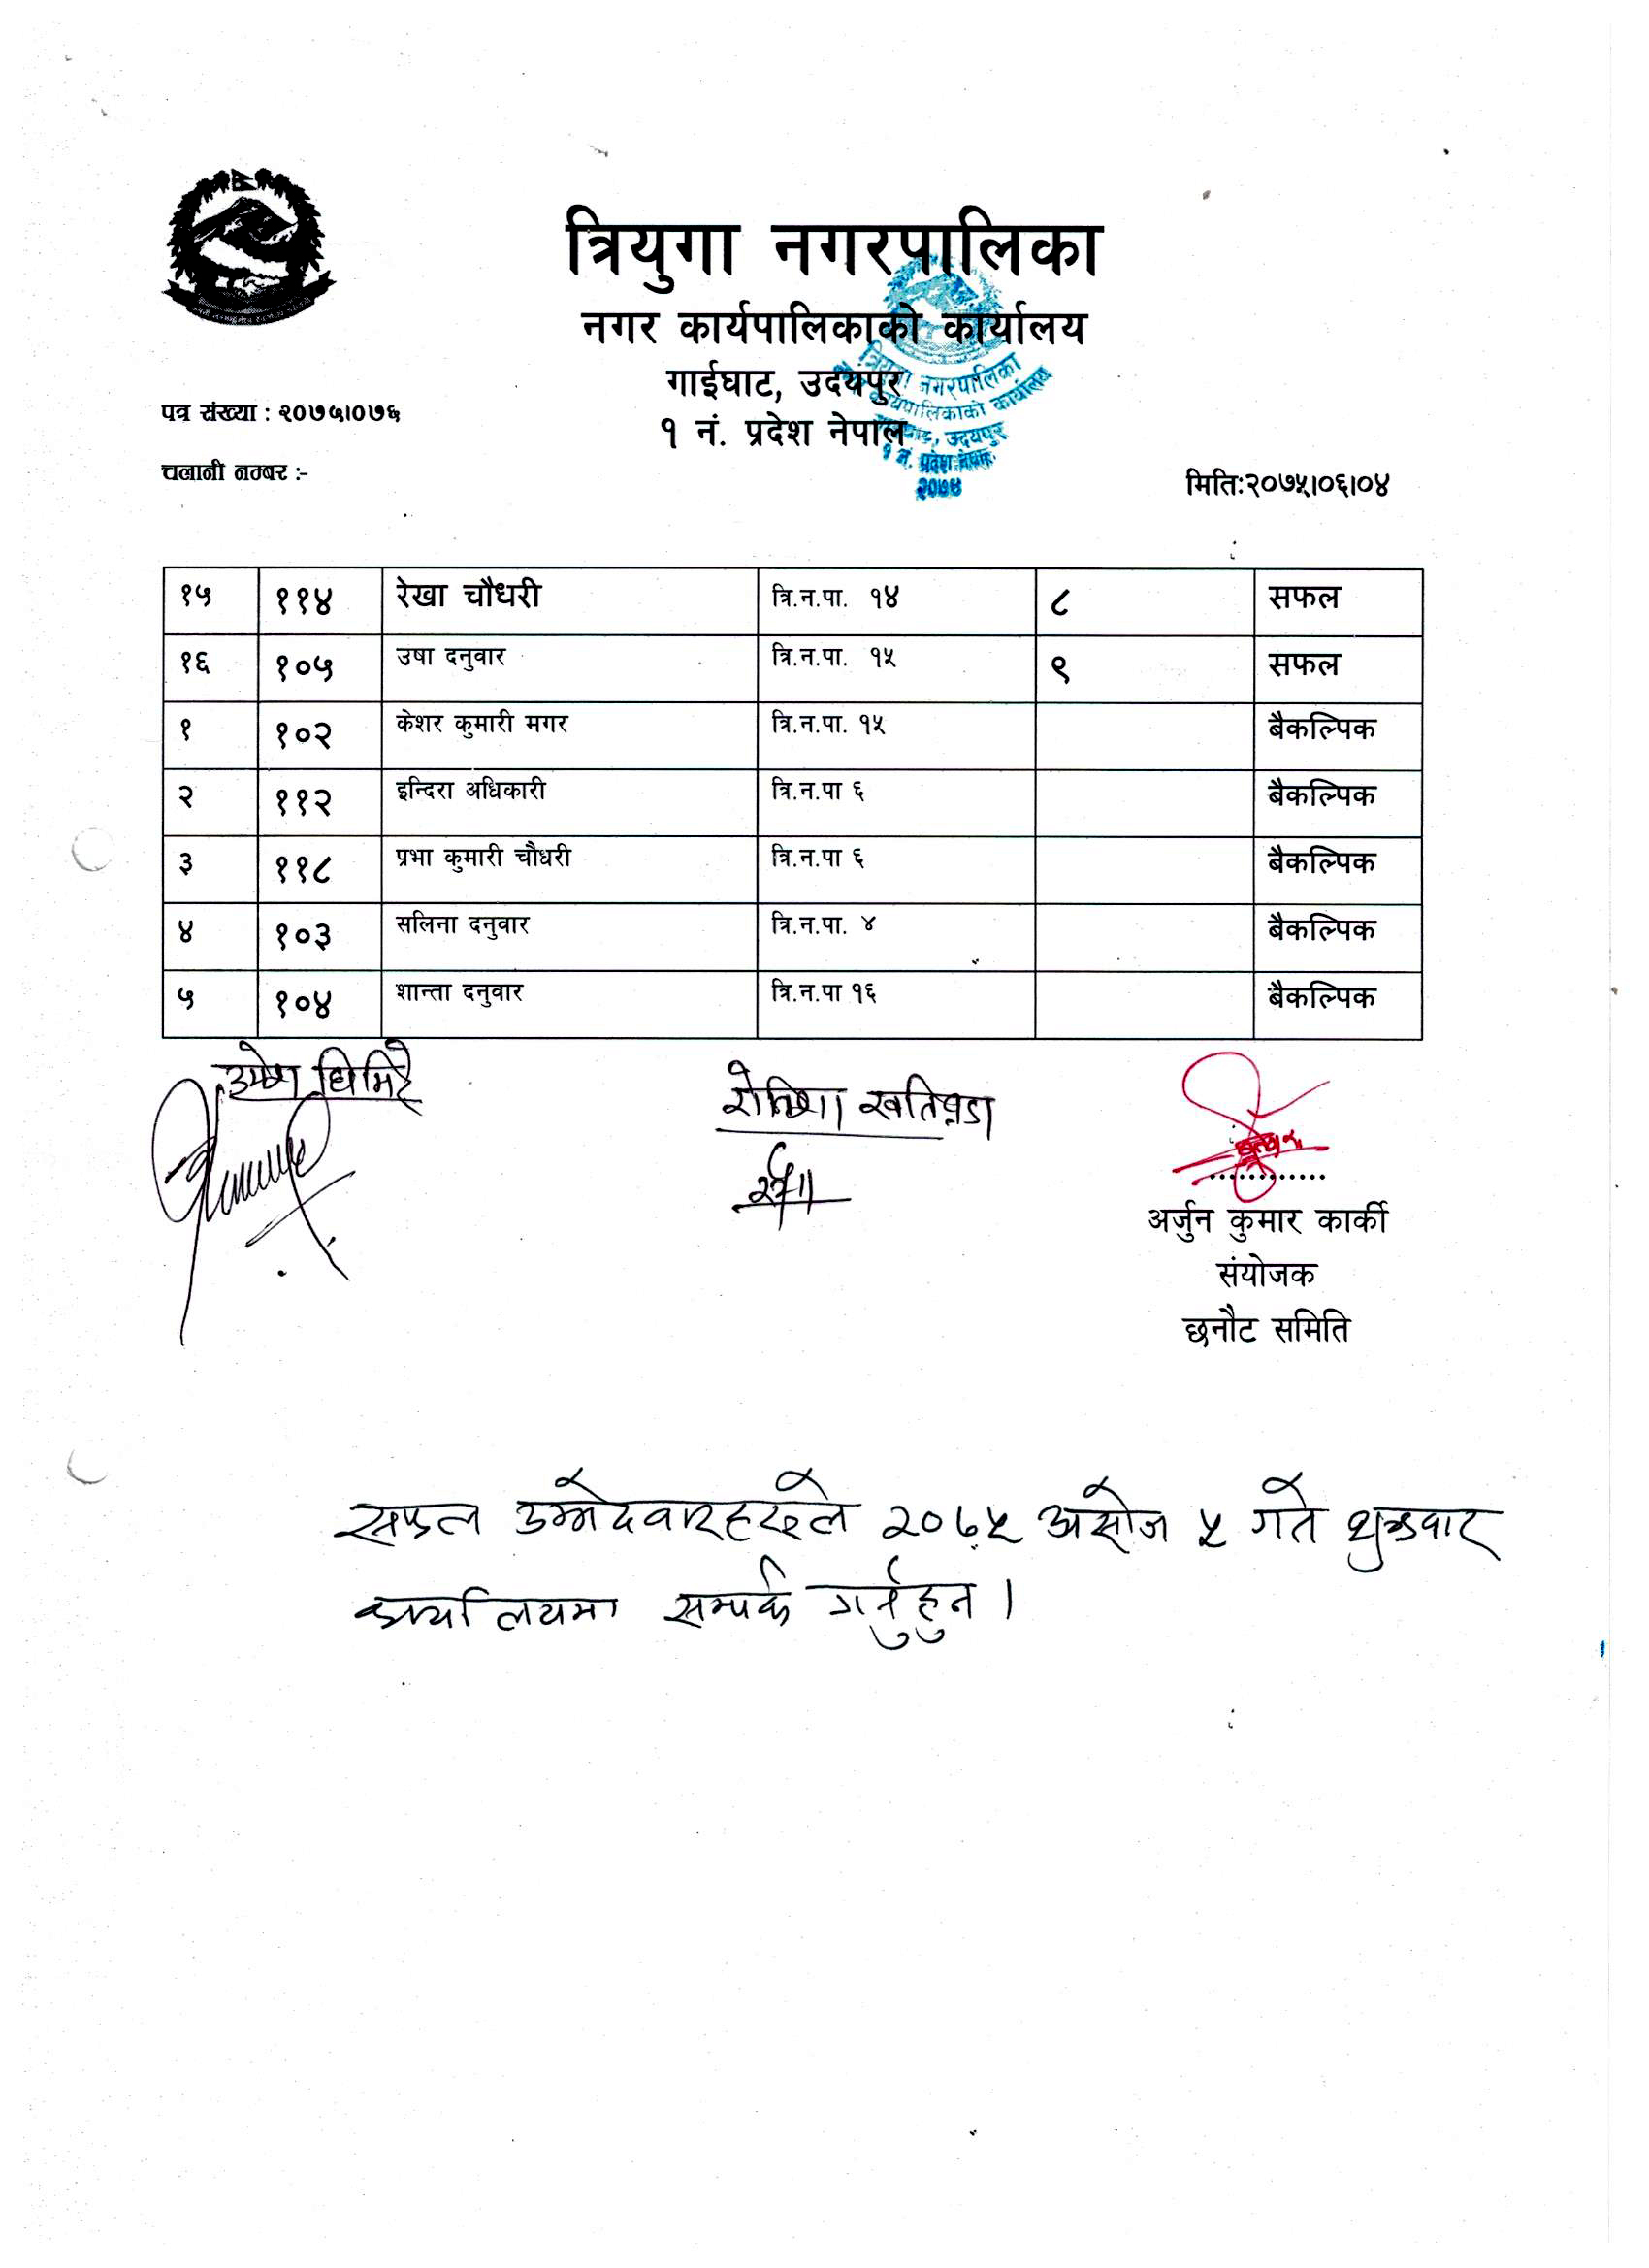 त्रियुगा नगरपालिका
नगर कार्यपालिकाको कार्यालय
गाईघाट, उदयपुर
१ नं. प्रदेश नेपाल
पत्र संख्या : २०७५।०७६
चलानी नम्बर :-
मिति:२०७५।०६।०४
त्रियुगा नगरपालिका
नगर कार्यपालिकाको कार्यालय
गाईघाट, उदयपुर
१ नं. प्रदेश नेपाल
२०७४
१५ ११४ रेखा चौधरी त्रि.न.पा. १४ ८ सफल
१६ १०५ उषा दनुवार त्रि.न.पा. १५ ९ सफल
१ १०२ केशर कुमारी मगर त्रि.न.पा. १५ बैकल्पिक
२ ११२ इन्दिरा अधिकारी त्रि.न.पा ६ बैकल्पिक
३ ११८ प्रभा कुमारी चौधरी त्रि.न.पा ६ बैकल्पिक
४ १०३ सलिना दनुवार त्रि.न.पा. ४ बैकल्पिक
५ १०४ शान्ता दनुवार त्रि.न.पा १६ बैकल्पिक
उमेश घिमिरे
खतिवडा
............
अर्जुन कुमार कार्की
संयोजक
छनौट समिति
सफल उम्मेदवारहरुले २०७५ असोज ५ गते शुक्रवार
कार्यालयमा सम्पर्क गर्नुहुन ।